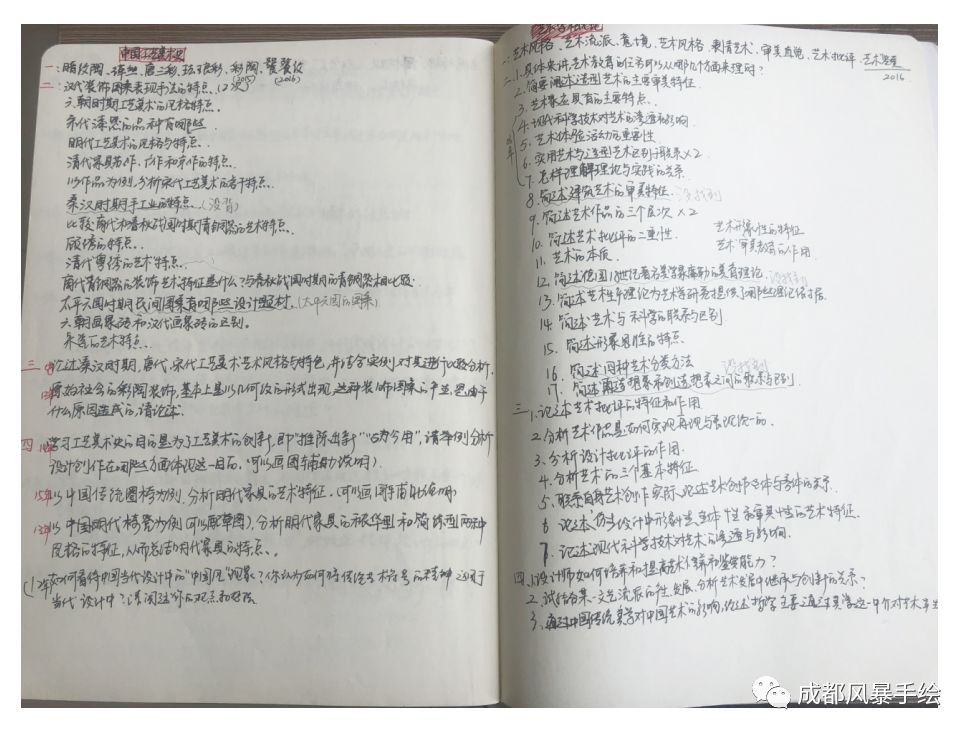 中国工艺美术史
一: 暗纹陶、缂丝、唐三彩、珐琅彩、彩陶、饕餮纹
(2015) (2016)
二: 汉代装饰图案表现手法的特点、(2次)
六朝时期工艺美术的风格特点.
宋代漆器的品种有哪些
明代工艺美术的风格与特点.
清代家具苏作、广作和京作的特点.
以作品为例,分析宋代工艺美术的若干特点.
秦汉时期手工业的特点、(没背)
比较商代和春秋战国时期青铜器的艺术特点.
顾绣的特点.
清代粤绣的艺术特点
商代青铜器的装饰艺术特征是什么?与春秋战国时期的青铜器相比
太平天国时期民间图案有哪些设计题材.(太平天国的图案)
六朝画像砖和汉代画像砖的区别.
的艺术特点.
三 论述秦汉时期、唐代、宋代工艺美术艺术风格与特色,并结合实例对其进行比较分析.
原始社会的彩陶装饰,基本上是以几何纹的形式出现,这种装饰图案的产生,是由于
什么原因造成的,请论述.
四 学习工艺美术史的目的是为了工艺美术的创新,即"推陈出新""古为今用",请举例分析
设计创作在哪些方面体现这一目的.(可以画图辅助说明).
15年 以中国传统圈椅为例,分析明代家具的艺术特征.(可以画图辅助说明)
13年 以中国明代椅凳为例(可以配草图),分析明代家具的 型和简练型两种
风格的特征,从而总结明代家具的特点.
12年 如何看待中国当代设计中的"中国风"现象?你认为如何将传统艺术符号的精神运用于
当代设计中?请阐述你的观点和
艺术学概论
一: 艺术风格、艺术流派、意境、艺术风格、表情艺术、审美直觉、艺术批评 艺术思维
2016
二. 1. 具体来讲,艺术教育的任务可以从哪几个方面来理解?
2. 简要阐述造型艺术的主要审美特征
3. 艺术家应具有的主要特点.
4. 现代科学技术对艺术的渗透和影响
5. 艺术体验活动的重要性
6. 实用艺术与造型艺术区别与联系×2
7. 怎样理解理论与实践的关系
8. 简述建筑艺术的审美特征. 没找到
9. 简述艺术作品的三个层次×2
10. 简述艺术批评的二重性. 艺术形象性的特征
11. 艺术的本质. 艺术审美教育的作用
12. 简述德国18世纪著名美学家康德的美育理论. 没找到
13. 简述艺术生产理论为艺术学研究提供了哪些理论依据.
14. 简述艺术与科学的联系与区别
15. 简述形象思维的特点
16. 简述四种艺术分类方法
17. 简述再造想象和创造想象之间的联系与区别. 没找到
三 1. 论述艺术批评的特征和作用
2. 分析艺术作品是如何实现再现与表现统一的.
3. 分析设计批评的作用.
4. 分析艺术的三个基本特征.
5. 联系自身艺术创作实际,论述艺术创作主体与客体的关系.
6 论述 设计中形象性、主体性和审美性的艺术特征.
7. 论述现代科学技术对艺术的渗透与影响.
四. 1. 设计师如何培养和提高艺术修养和鉴赏能力?
2. 试结合某一文艺流派的产生、发展,分析艺术发展中继承与创新的关系?
3. 通过中国传统美学对中国艺术的影响,论述哲学主要通过美学这一中介对艺术产生
成都风暴手绘